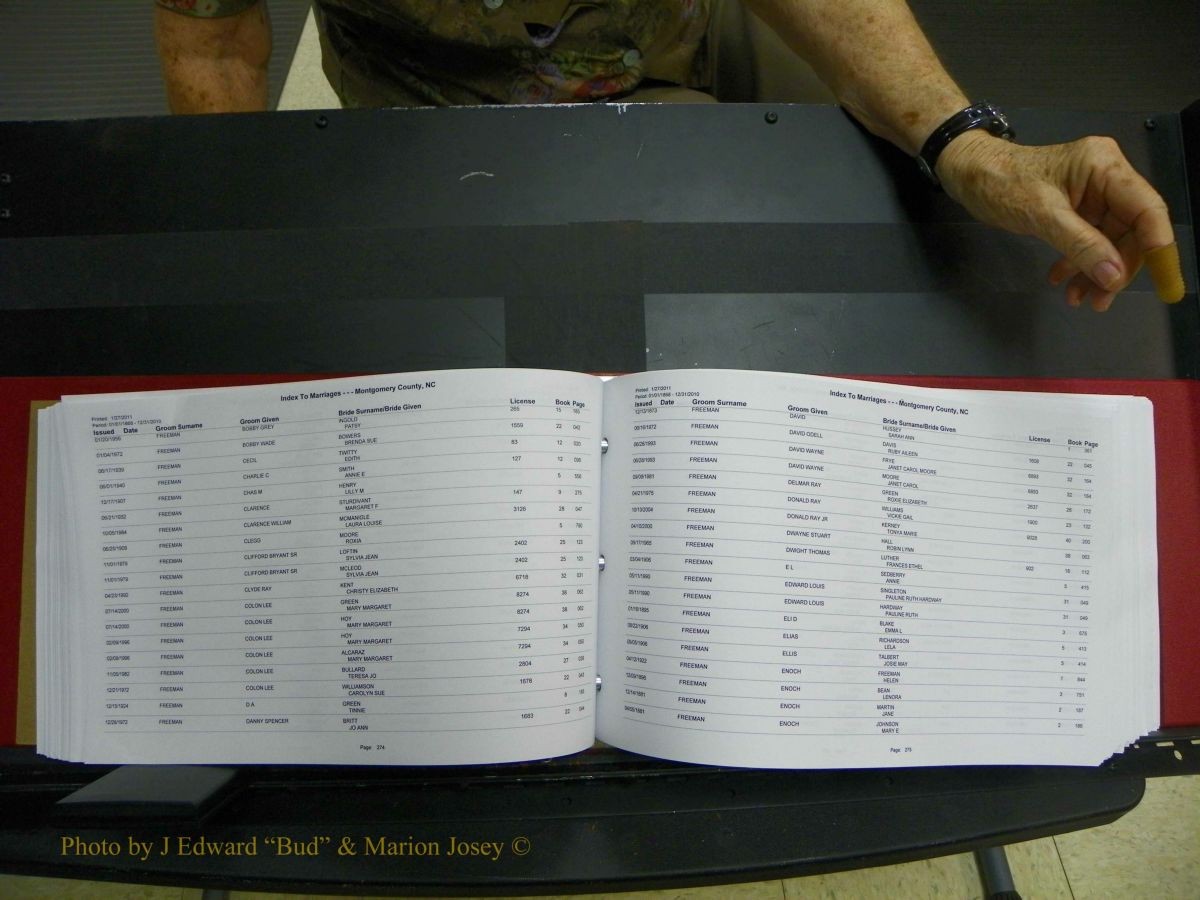 Index To Marriages - - - Montgomery County, NC
Printed 1/27/2011
Period: 01/01/1868 - 12/31/2010
Issued Date Groom Surname Groom Given Bride Surname/Bride Given License Book Page
01/20/1956 FREEMAN BOBBY GREY INGOLD PATSY 265 15 185
01/04/1972 FREEMAN BOBBY WADE BOWERS BRENDA SUE 1559 22 042
06/17/1939 FREEMAN CECIL TWITTY EDITH 83 12 020
06/01/1940 FREEMAN CHARLIE C SMITH ANNIE E 127 12
12/17/1907 FREEMAN CHAS M HENRY LILLY M 5
05/21/1932 FREEMAN CLARENCE STURDIVANT MARGARET F 147 9 275
10/05/1984 FREEMAN CLARENCE WILLIAM MCMANIGLE LAURA LOUISE 3126 28 047
FREEMAN CLEGG MOORE ROXIA 5
11/01/1979 FREEMAN CLIFFORD BRYANT SR LOFTIN SYLVIA JEAN 2402 25 123
11/01/1979 FREEMAN CLIFFORD BRYANT SR MCLEOD SYLVIA JEAN 2402 25 123
04/23/1993 FREEMAN CLYDE RAY KENT CHRISTY ELIZABETH 6718 32 031
07/14/2000 FREEMAN COLON LEE GREEN MARY MARGARET 8274 38 062
07/14/2000 FREEMAN COLON LEE HOY MARY MARGARET 8274 38 062
02/09/1996 FREEMAN COLON LEE HOY MARY MARGARET 7294 34 050
02/09/1996 FREEMAN COLON LEE ALCARAZ MARY MARGARET 7294 34 050
11/05/1982 FREEMAN COLON LEE BULLARD TERESA JO 2804 27 008
12/21/1972 FREEMAN COLON LEE WILLIAMSON CAROLYN SUE 1678 22 042
12/19/1924 FREEMAN D A GREEN TINNIE 8
12/26/1972 FREEMAN DANNY SPENCER BRITT JO ANN 1683 22 044
Page 274
Index To Marriages - - - Montgomery County, NC
Printed 1/27/2011
Period: 01/01/1868 - 12/31/2010
Issued Date Groom Surname Groom Given Bride Surname/Bride Given License Book Page
12/12/1873 FREEMAN DAVID HUSSEY SARAH ANN 1 361
09/16/1972 FREEMAN DAVID ODELL DAVIS RUBY AILEEN 1608 22 045
06/28/1993 FREEMAN DAVID WAYNE FRYE JANET CAROL MOORE 6893 32 164
06/28/1993 FREEMAN DAVID WAYNE MOORE JANET CAROL 6893 32 164
09/09/1981 FREEMAN DELMAR RAY GREEN ROXIE ELIZABETH 2637 26 172
04/21/1976 FREEMAN DONALD RAY WILLIAMS VICKIE GAIL 1900 23 122
10/13/2004 FREEMAN DONALD RAY JR KERNEY TONYA MARIE 9328 40 200
04/10/2000 FREEMAN DWAYNE STUART HALL ROBIN LYNN 38 063
09/17/1965 FREEMAN DWIGHT THOMAS LUTHER FRANCES ETHEL 902 18 112
03/04/1906 FREEMAN E L SEDBERRY ANNIE 5 415
05/11/1990 FREEMAN EDWARD LOUIS SINGLETON PAULINE RUTH HARDWAY 31 049
05/11/1990 FREEMAN EDWARD LOUIS HARDWAY PAULINE RUTH 31 049
01/10/1895 FREEMAN ELI D BLAKE EMMA L 3 675
FREEMAN ELIAS RICHARDSON LELA 5 413
05/05/1906 FREEMAN ELLIS TALBERT JOSIE MAY 5 414
04/12/1922 FREEMAN ENOCH FREEMAN HELEN 7 844
FREEMAN ENOCH BEAN LENORA 2 751
12/14/1881 FREEMAN ENOCH MARTIN JANE 2 187
FREEMAN ENOCH JOHNSON MARY E 2 185
Page 275
Photo by J Edward “Bud” & Marion Josey ©